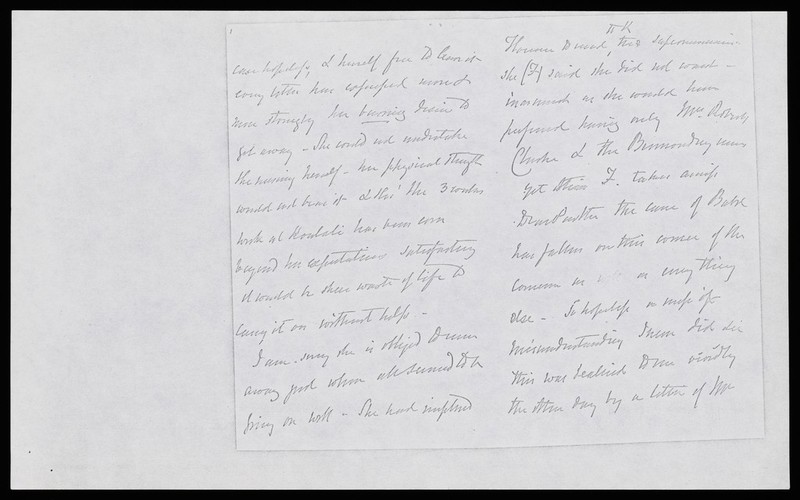 case hopeless, & herself free to leave it
every letter has expressed more &
more strongly her burning desire to
get away - She could not undertake
the nursing herself - her physical strength
would not bear it & tho' the 3 weeks
work at Koulali has been even
beyond her expectations satisfactory
it would be sheer waste of life to
carry it on without help -
I am sorry she is obliged to
away just when all seemed to be
going on well - She had
this
she (F) said she did not want -
inasmuch as she would have
preferred having only Mrs Roberts
Clarke & the Bermondsey nuns
yet this F. takes amiss
the curse of Babel
has fallen on this corner of the
concern as on everything
else - So hopeless a mess of
misunderstanding I never did see
this was realized to me vividly
the other day by a letter of Mr